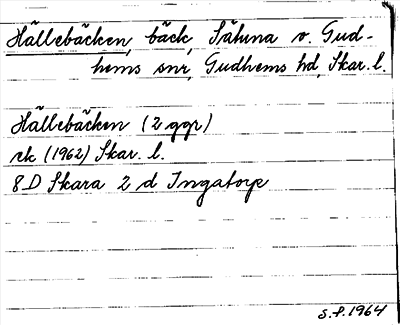 Hällebäcken, bäck, Sätuna v. Gud-
hems snr, Gudhems hd, Skar. l.
Hällebäcken (2 ggr)
rk (1962) Skar. l.
8D Skara 2 d Ingatorp
S.P. 1964